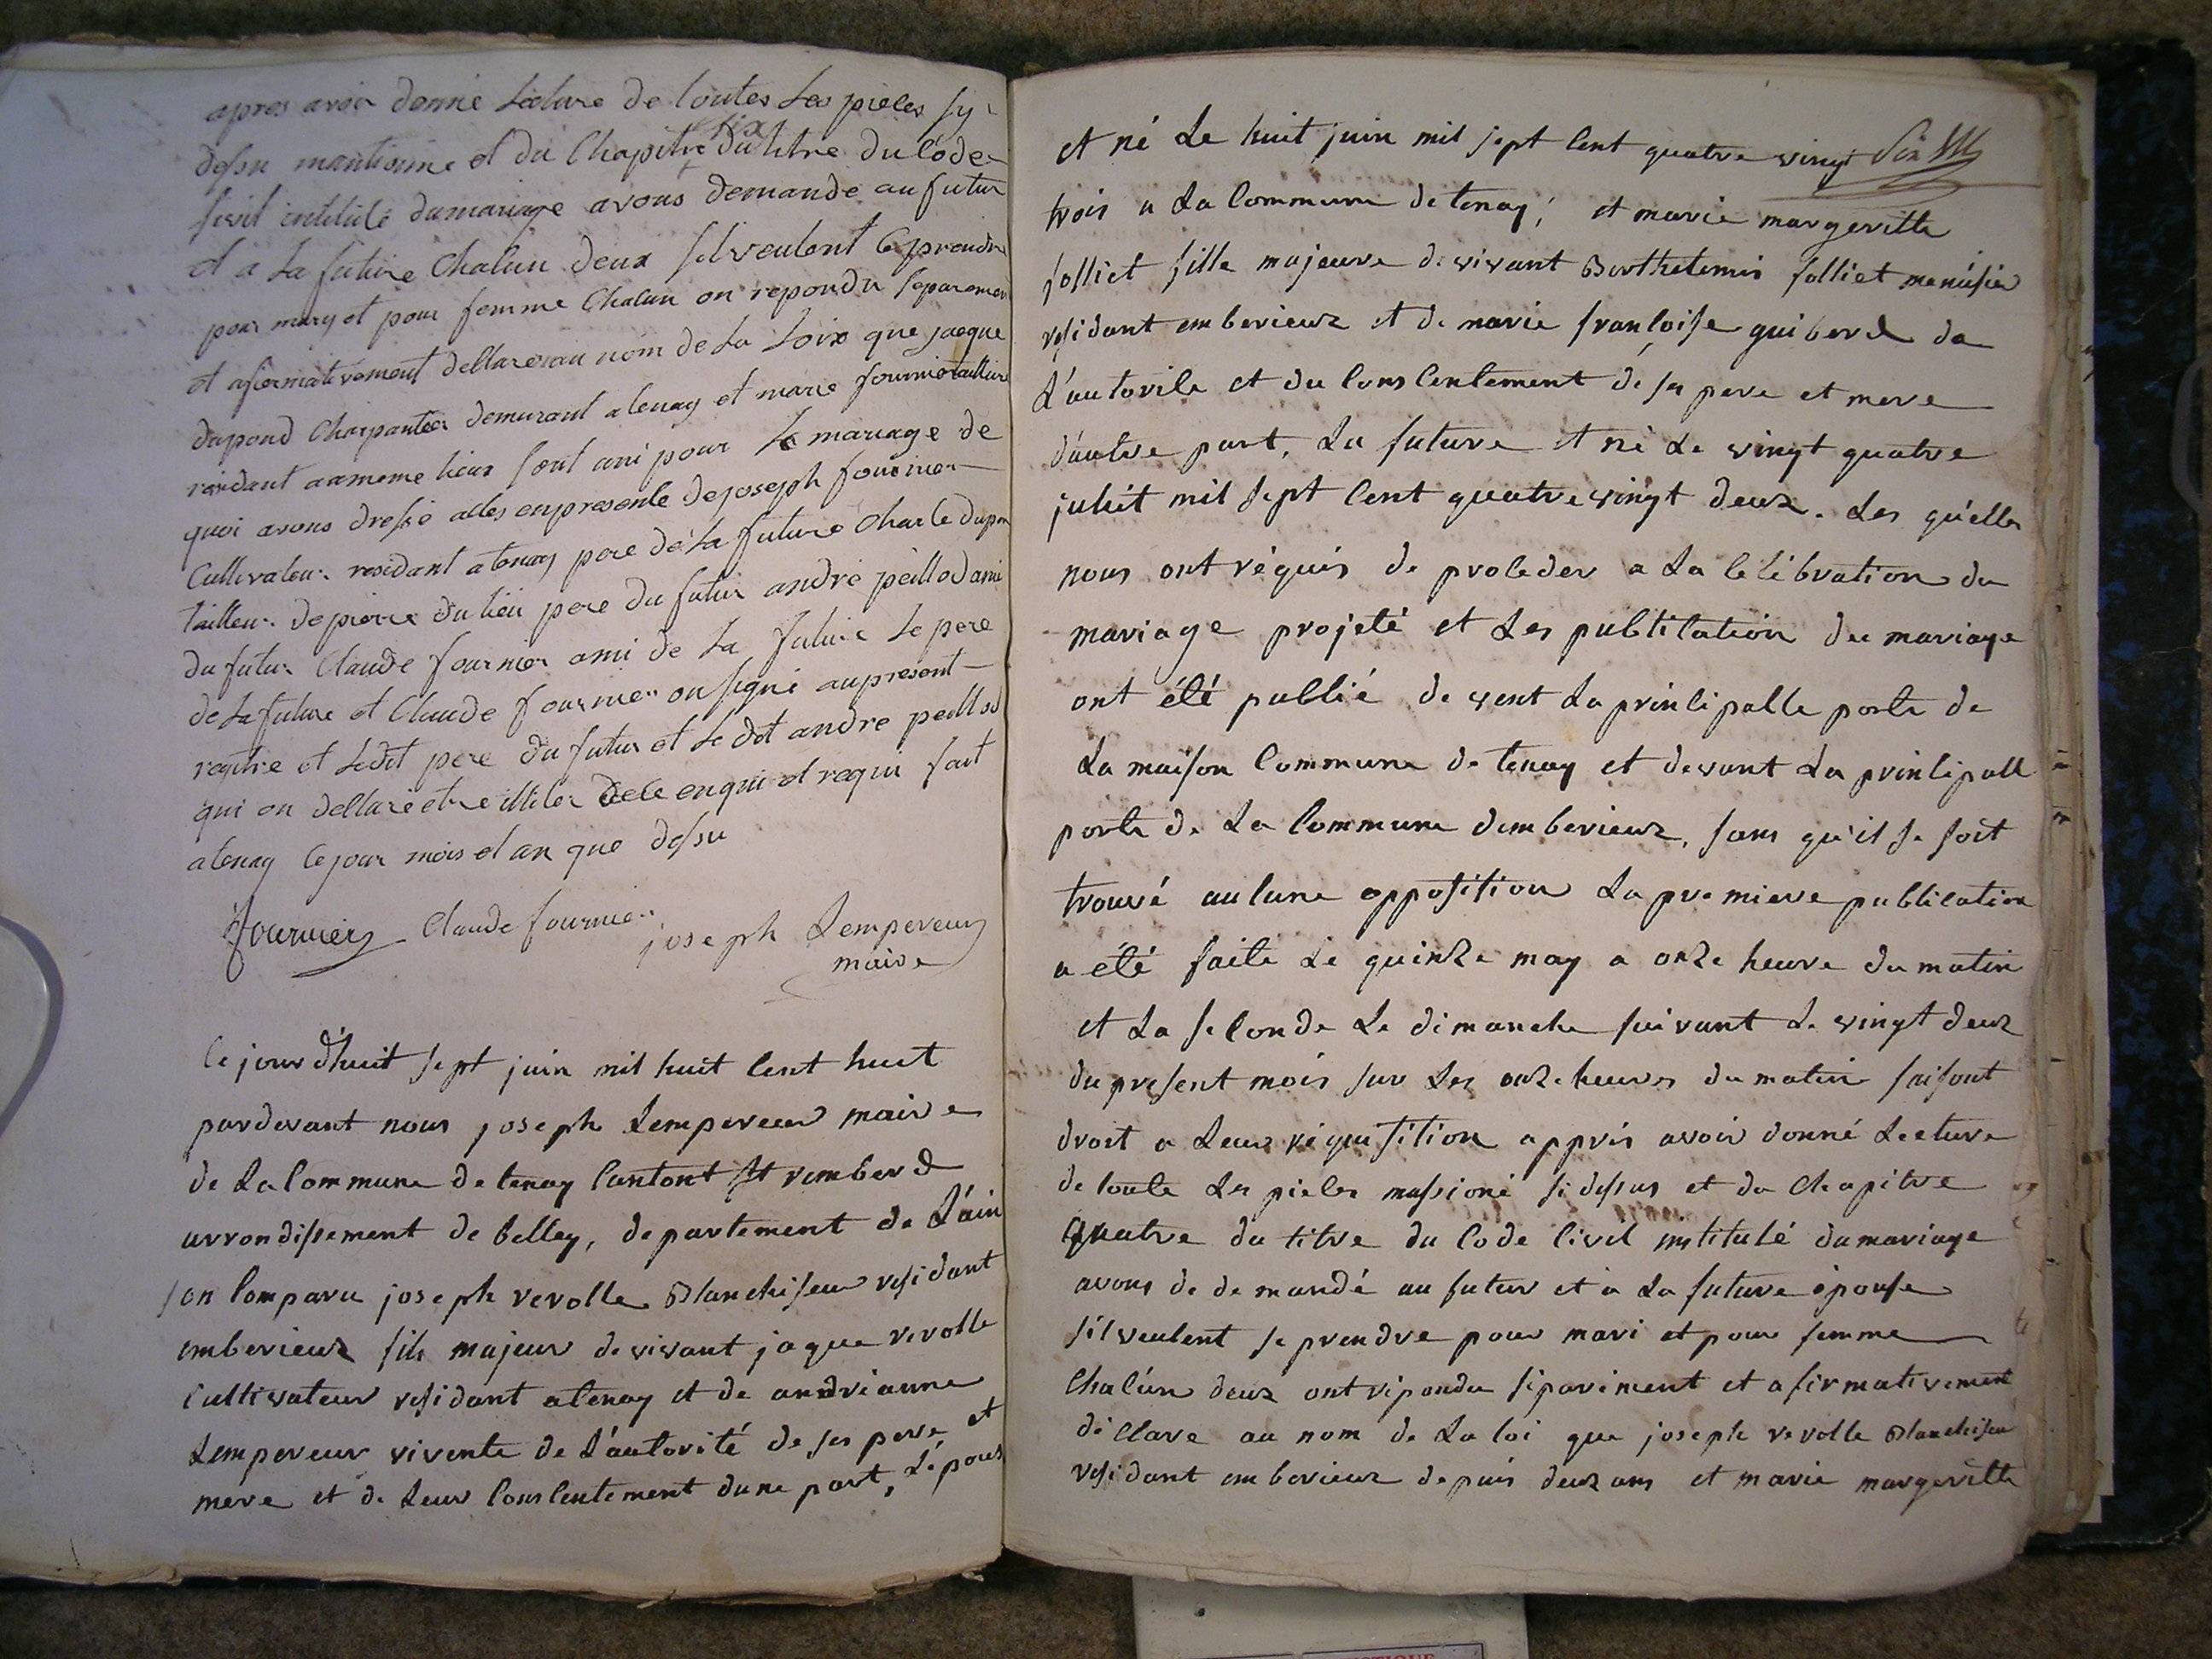 apres avoir donné Lecture de toutes Les pieces sy-
dessu mantionné et du Chapitre six du titre du Code
sivil intitulé du mariage avons demandé au futur
et a La future Chacun deux sil veulent se prendre
pour mary et pour femme Chacun on repondu separement
et afirmativement declarons au nom de La Loix que jacque
dupond Charpantier demurant a tenay et marie fournier
residant au meme lieux sont uni pour Le mariage de
quoi avons dressé actes en presente de joseph fournier
Cultivateur residant a tenay pere de La future Charle dupon
tailleur de pierre du lieu pere du futur andré peillod ami
du futur Claude fournier ami de La future Le pere
de La future et Claude fournier on signé au present
registre et Ledit pere du futur et Le dit andre peillod
qui on declaré etre illiter de ce enquis et requi fait
a tenay le jour mois et an que dessu
fournier Claude fournier joseph Lempereur
maire
Ce jourd'huit sept juin mil huit Cent huit
pardevant nous joseph Lempereur maire
de La Commune de tenay Cantont St rember d
arrondissement de belley, departement de L'ain
son Comparu joseph revolle Blanchiseur residant
emberieux fils majeur de vivant jaque revolle
Cultivateur residant a tenay et de andrianne
Lempereur vivente de L'autorité de ses pere et
mere et de Leur Conscentement dune part, L'epoux
et né Le huit juin mil sept Cent quatre vingt Six
trois a La Commune de tenay, et marie margeritte
folliet fille majeure de vivant Barthelemis folliet menuisier
residant emberieux et de marie françoise guiberd de
L'autorité et du Conscentement de sa pere et mere
d'autre part, La future et né Le vingt quatre
juliet mil sept Cent quatre vingt deux. Les qu'elles
nous ont réquis de proceder a La Célébration du
mariage projeté et Les publication du mariage
ont été publié de vent La principalle porte de
La maison Commune de tenay et devant La principall
porte de La Commune demberieux, sans qu'il se soit
trouvé aucune opposition La premiere publication
a été faite Le quinze may a onze heure du matin
et La seconde Le dimanche suivant Le vingt deux
du present mois sur Les onze heures du matin faisont
droit a Leur réquisition appres avoir donné Lecture
de toute Les pieces massioné si dessus et du Chapitre
quatre du titre du Code Civil institulé du mariage
avons de demandé au futur et à La future épouse
s'il veulent se prendre pour mari et pour femme
Chacún deux ont répondu séparément et afirmativement
déclare au nom de La loi que joseph revolle Blanchiseu
residant emberieux depuis deux ans et marie margeritte